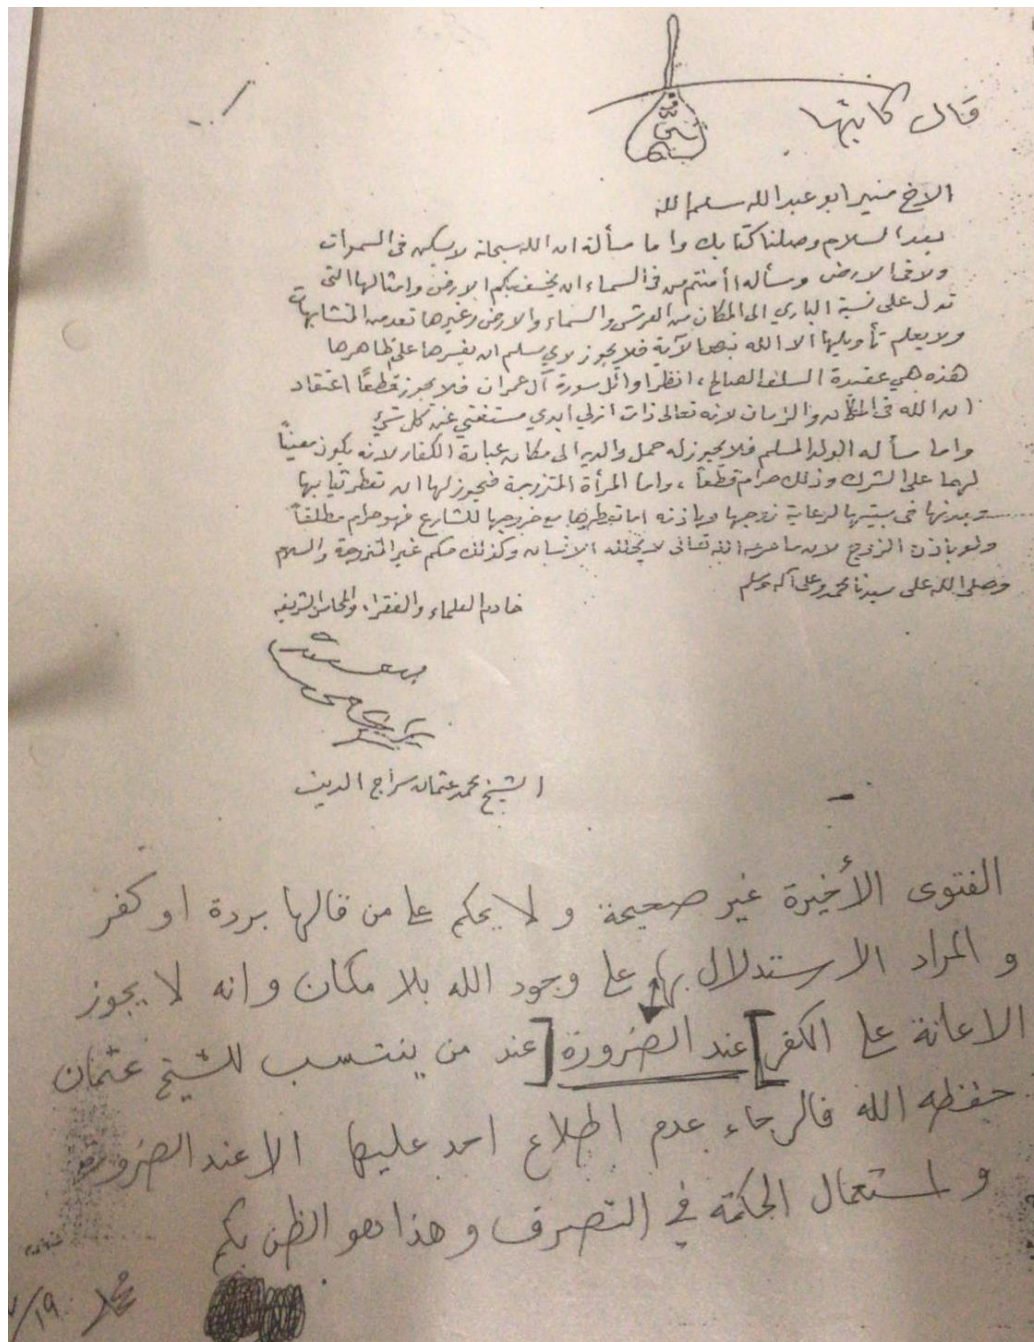 قال كاتبها
الاخ منير ابو عبدالله سلمه الله
بعد السلام وصلنا كتابك واما مسألة ان الله سبحانه لا يسكن فى السموات
ولا فى الارض ومسألة أأمنتم من فى السماء ان يخسف بكم الارض وامثالها التى
تدل على نسبة الباري الى المكان من العرش والسماء والارض وغيرها تعد من المتشابهات
ولا يعلم تأويلها الا الله بنص الآية فلا يجوز لاي مسلم ان يفسرها على ظاهرها
هذه هي عقيدة السلف الصالح، انظر اوائل سورة آل عمران فلا يجوز قطعاً اعتقاد
ان الله فى المكان والزمان لانه تعالى ذات ازلي ابدي مستغني عن كل شيء
واما مسألة الولد المسلم فلا يجوز له حمل والديه الى مكان عبادة الكفار لانه يكون معيناً
لهما على الشرك وذلك حرام قطعاً، واما المرأة المتزوجة فيجوز لها ان تعطر ثيابها
وبدنها فى بيتها لرعاية زوجها وباذنه اما تعطرها مع خروجها للشارع فهو حرام مطلقاً
ولو باذن الزوج لان ما حرمه الله تعالى لا يحلله الانسان وكذلك حكم غير المتزوجة والسلام
وصلى الله على سيدنا محمد وعلى آله وسلم
خادم العلماء والفقراء والمجالس الشريفه
الشيخ محمد عثمان سراج الدين
الفتوى الأخيرة غير صحيحة و لا يحكم على من قالها بردة او كفر
و المراد الاستدلال بها على وجود الله بلا مكان وانه لا يجوز
الاعانة على الكفر [عند الضرورة] عند من ينتسب للشيخ عثمان
حفظه الله فالرجاء عدم اطلاع احد عليها الا عند الضرورة
و استعمال الحكمة في التصرف وهذا هو الظن بكم